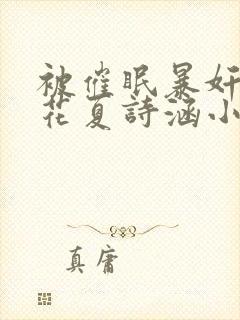 被催眠暴奸
花夏詩涵小
真庸